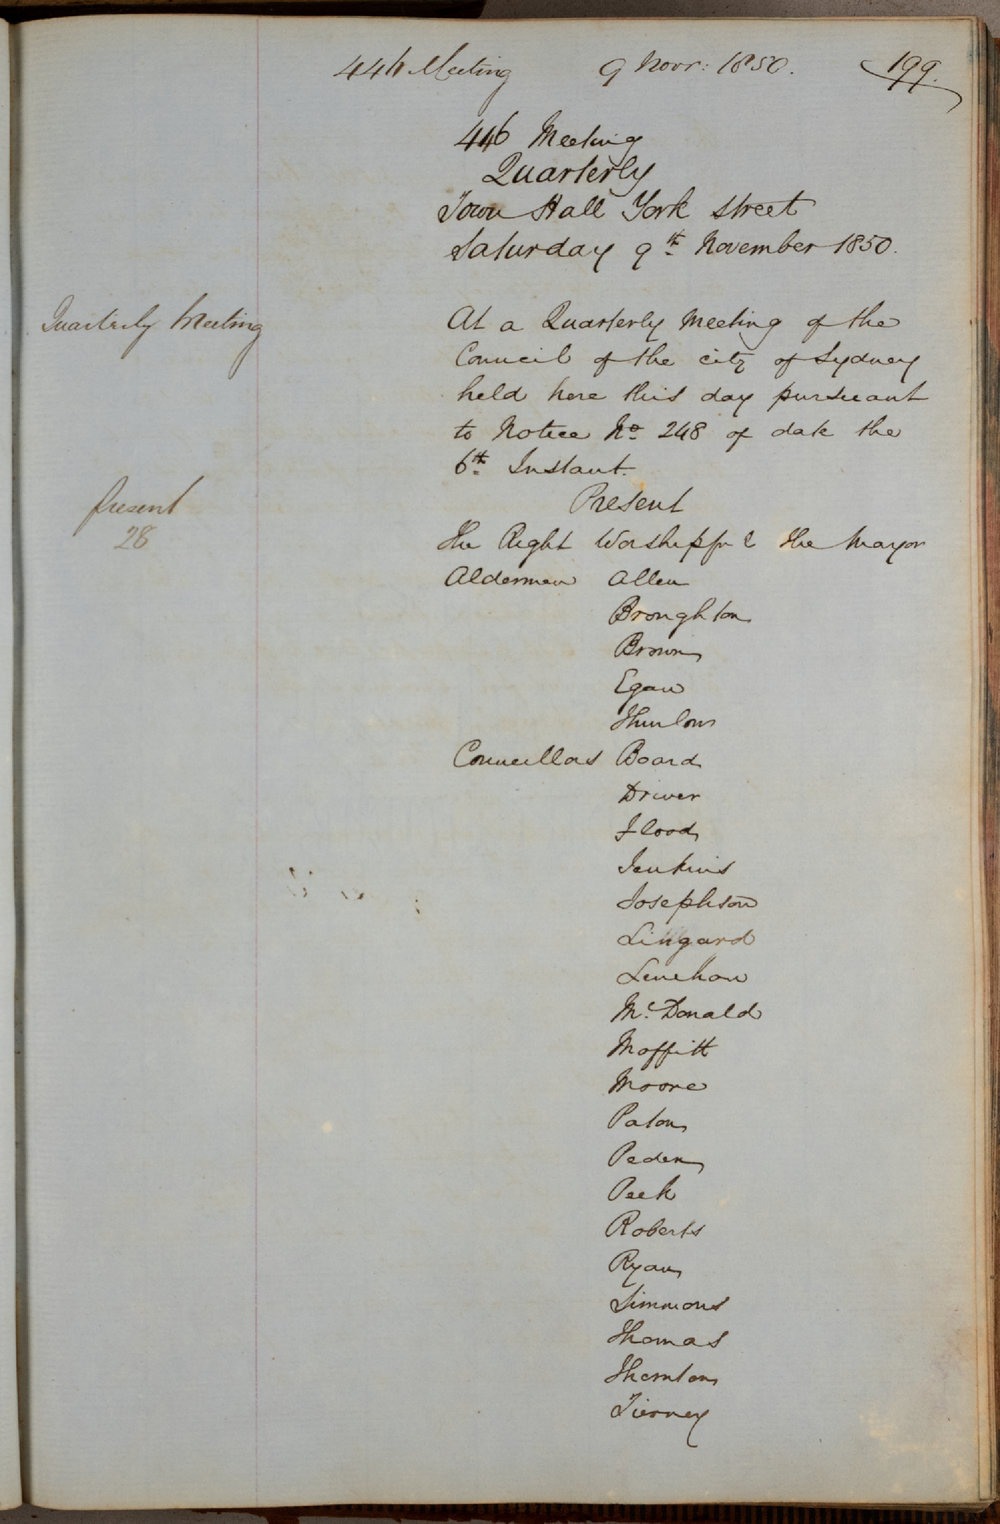 446 Meeting 9 Novr: 1850. 199.
446 Meeting
Quarterly
Town Hall York street
Saturday 9th November 1850.
Quarterly Meeting
At a Quarterly Meeting of the
Council of the city of Sydney
held here this day pursuant
to Notice No 248 of date the
6th Instant.
Present
Present
28
The Right Worshipful the Mayor
Aldermen Allen
Broughton
Brown
Egan
Thurlow
Councillors Board
Driver
Flood
Jenkins
Josephson
Lingard
Lenehan
McDonald
Moffitt
Moore
Paton
Peden
Peek
Roberts
Ryan
Simmons
Thomas
Thornton
Tierney